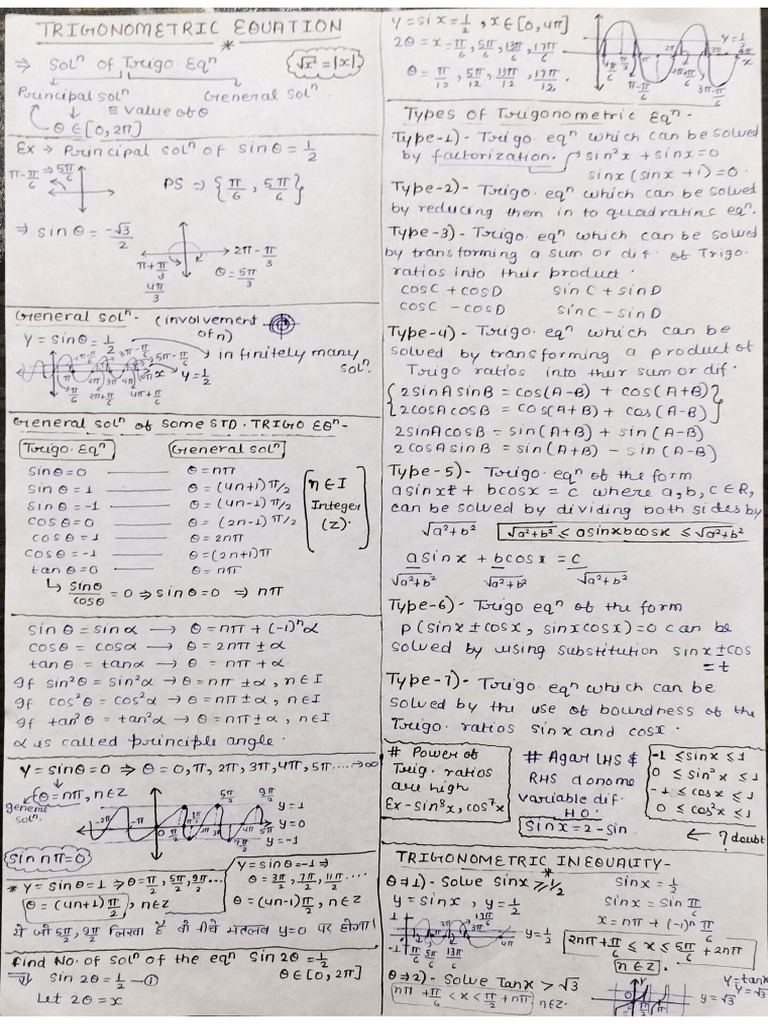 TRIGONOMETRIC EQUATION
*
⇒ Solⁿ of Trigo. Eqⁿ
√x² = |x|
Principal Solⁿ
General Solⁿ
≡ value of θ
θ ∈ [0, 2π]
Ex → Principal solⁿ of sinθ = 1/2
π - π/6 ⇒ 5π/6
PS ⇒ {π/6, 5π/6}
⇒ sinθ = -√3/2
2π - π/3
π + π/3
θ = 5π/3
4π/3
General Solⁿ - (involvement of n)
Y = sinθ = 1/2
infinitely many solⁿ.
y = 1/2
General solⁿ of some STD. TRIGO EQⁿ-
Trigo. Eqⁿ General Solⁿ
sinθ = 0 θ = nπ
sinθ = 1 θ = (4n+1)π/2
sinθ = -1 θ = (4n-1)π/2
cosθ = 0 θ = (2n-1)π/2
cosθ = 1 θ = 2nπ
cosθ = -1 θ = (2n+1)π
tanθ = 0 θ = nπ
n ∈ I
Integer
(Z).
↳ sinθ/cosθ = 0 ⇒ sinθ = 0 ⇒ nπ
sinθ = sinα → θ = nπ + (-1)ⁿα
cosθ = cosα → θ = 2nπ ± α
tanθ = tanα → θ = nπ + α
If sin²θ = sin²α → θ = nπ ± α, n∈I
If cos²θ = cos²α → θ = nπ ± α, n∈I
If tan²θ = tan²α → θ = nπ ± α, n∈I
α is called principle angle.
Y = sinθ = 0 ⇒ θ = 0, π, 2π, 3π, 4π, 5π.....→∞
θ = nπ, n∈Z
general solⁿ.
y = 1
y = 0
y = -1
sin nπ = 0
* Y = sinθ = 1 ⇒ θ = π/2, 5π/2, 9π/2...
θ = (4n+1)π/2, n∈Z
Y = sinθ = -1 ⇒
θ = 3π/2, 7π/2, 11π/2....
θ = (4n-1)π/2, n∈Z
ये जो 5π/2, 9π/2 लिखा है वो नीचे मतलब y=0 पर होगा।
Find No. of solⁿ of the eqⁿ sin 2θ = 1/2
θ ∈ [0, 2π]
sin 2θ = 1/2 — ①
Let 2θ = x
Y = sin x = 1/2, x ∈ [0, 4π]
2θ = x = π/6, 5π/6, 13π/6, 17π/6
θ = π/12, 5π/12, 13π/12, 17π/12.
Types of Trigonometric Eqⁿ -
Type-1)- Trigo. eqⁿ which can be solved
by factorization. → sin²x + sinx = 0
sinx (sinx + 1) = 0.
Type-2)- Trigo. eqⁿ which can be solved
by reducing them in to quadrating eqⁿ.
Type-3)- Trigo. eqⁿ which can be solved
by transforming a sum or dif. of Trigo.
ratios into their product.
cosC + cosD sinC + sinD
cosC - cosD sinC - sinD
Type-4)- Trigo. eqⁿ which can be
solved by transforming a product of
Trigo ratios into their sum or dif.
2sinA sinB = cos(A-B) + cos(A+B)
2cosA cosB = cos(A+B) + cos(A-B)
2sinA cosB = sin(A+B) + sin(A-B)
2cosA sinB = sin(A+B) - sin(A-B)
Type-5)- Trigo. eqⁿ of the form
asinx± + bcosx = c where a,b,c∈R,
can be solved by dividing both sides by
√a²+b² √a²+b² ≤ asinxbcosx ≤ √a²+b²
asinx/√a²+b² + bcosx/√a²+b² = c/√a²+b²
Type-6)- Trigo eqⁿ of the form
P(sinx ± cosx, sinxcosx) = 0 can be
solved by using substitution sinx ± cos
= t
Type-7)- Trigo. eqⁿ which can be
solved by the use of boundness of the
Trigo. ratios sinx and cosx.
# Power of
Trig. ratios
are high
Ex- sin⁸x, cos⁷x
# Agar LHS &
RHS donome
variable dif.
HO.
sinx = 2 - sin
-1 ≤ sinx ≤ 1
0 ≤ sin²x ≤ 1
-1 ≤ cosx ≤ 1
0 ≤ cos²x ≤ 1
← ? doubt
TRIGONOMETRIC INEQUALITY-
*
θ⇒1)- Solve sinx ≥ 1/2
y = sinx, y = 1/2
y = 1/2
sinx = 1/2
sinx = sin π/6
x = nπ + (-1)ⁿ π/6
2nπ + π/6 ≤ x ≤ 5π/6 + 2nπ
n∈Z.
θ⇒2)- Solve Tanx > √3
nπ + π/6 < x < π/2 + nπ n∈Z.
Y = tanx
Y = √3
y = √3